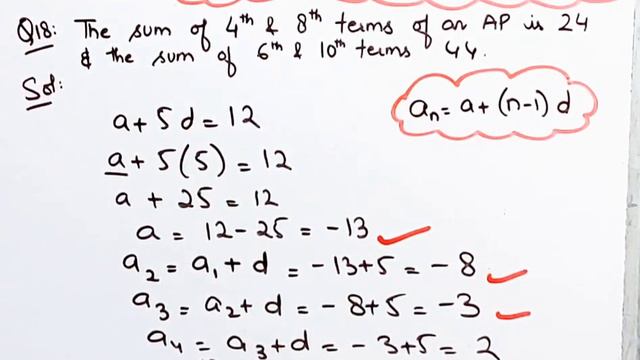 Q18: The sum of 4th & 8th terms of an AP is 24
& the sum of 6th & 10th terms 44.
Sol:
an = a + (n-1) d
a + 5d = 12
a + 5(5) = 12
a + 25 = 12
a = 12 - 25 = -13
a2 = a1 + d = -13+5 = -8
a3 = a2 + d = -8+5 = -3
a4 = a3 + d = -3+5 = 2